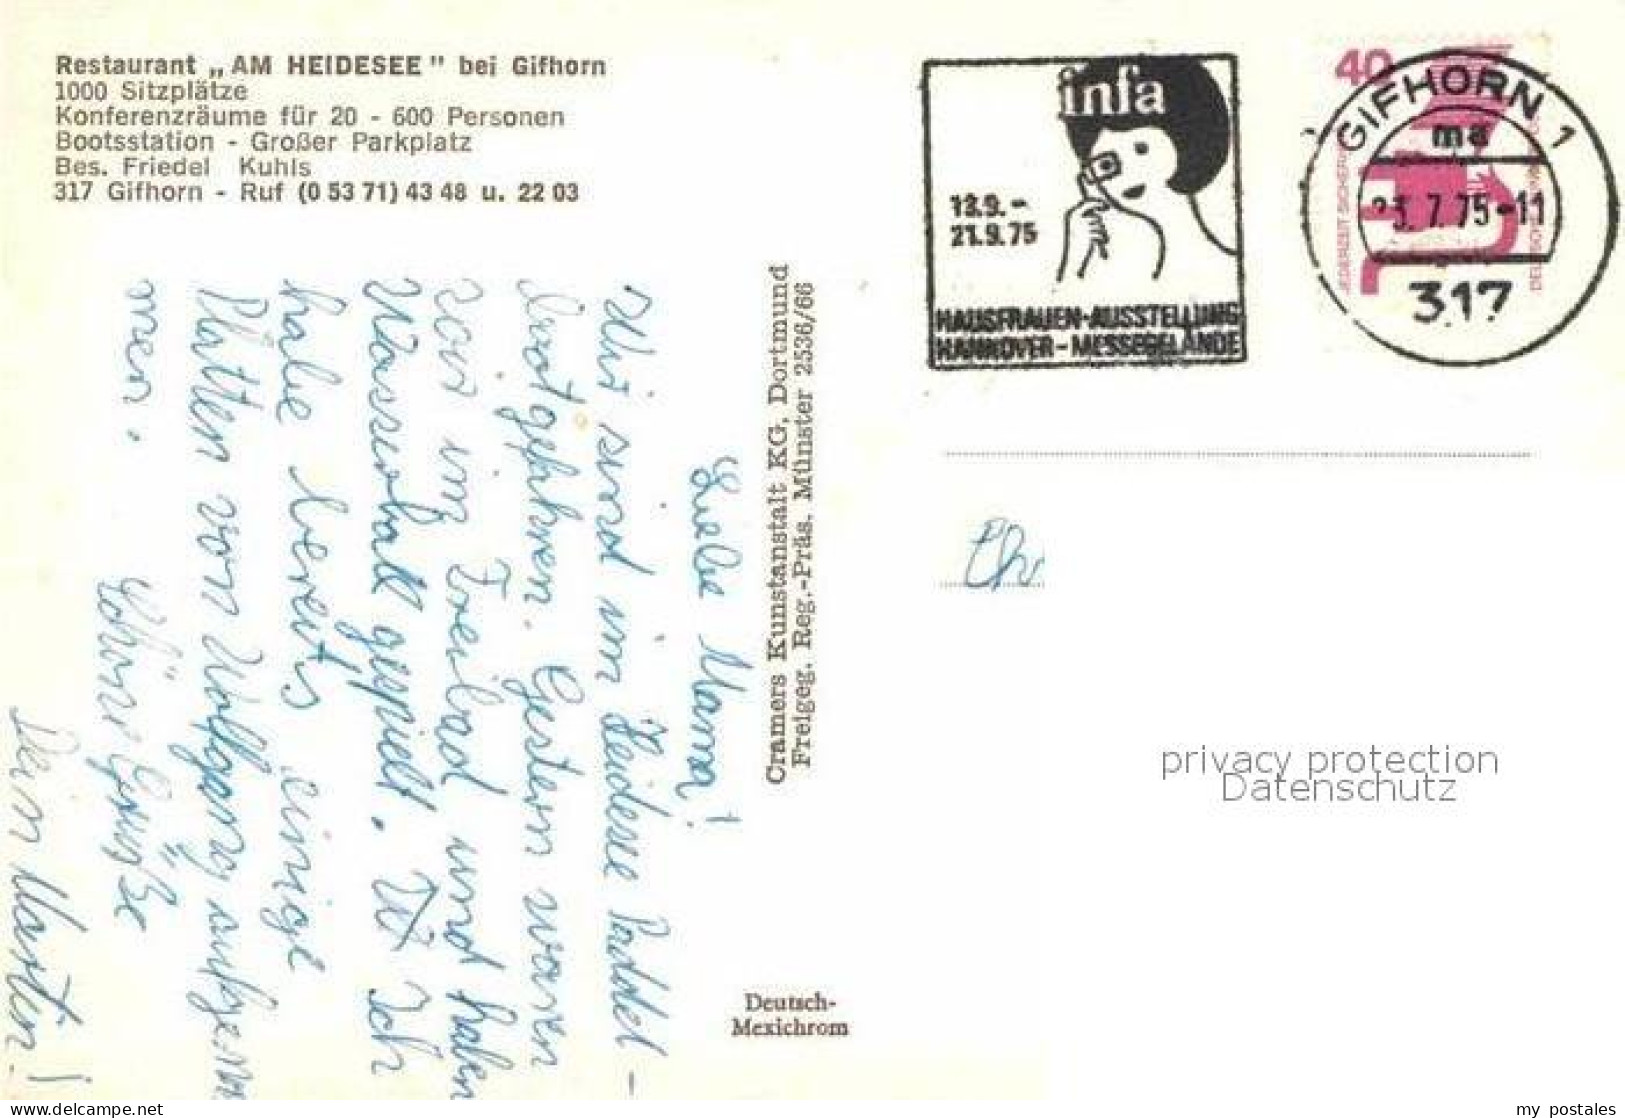 Restaurant „AM HEIDESEE" bei Gifhorn
1000 Sitzplätze
Konferenzräume für 20 - 600 Personen
Bootsstation - Großer Parkplatz
Bes. Friedel Kuhls
317 Gifhorn - Ruf (0 53 71) 43 48 u. 22 03
infa
13.9.-
21.9.75
HAUSFRAUEN-AUSSTELLUNG
HANNOVER-MESSEGELÄNDE
40
JEDERZEIT SICHERHEIT
GIFHORN 1
ma
7.75-11
317
Liebe Mama!
Wir sind im Heidesee Paddel-
boot gefahren. Gestern waren
wir im Freibad und haben
Wasserball gespielt. Ich
habe bereits einige
Platten von Wolfgang aufgenom
men.
Schöne Grüße
Dein Martin!
Cramers Kunstanstalt KG, Dortmund
Freigeg. Reg.-Präs. Münster 2536/66
Deutsch-
Mexichrom
privacy protection
Datenschutz
my postales
www.delcampe.net